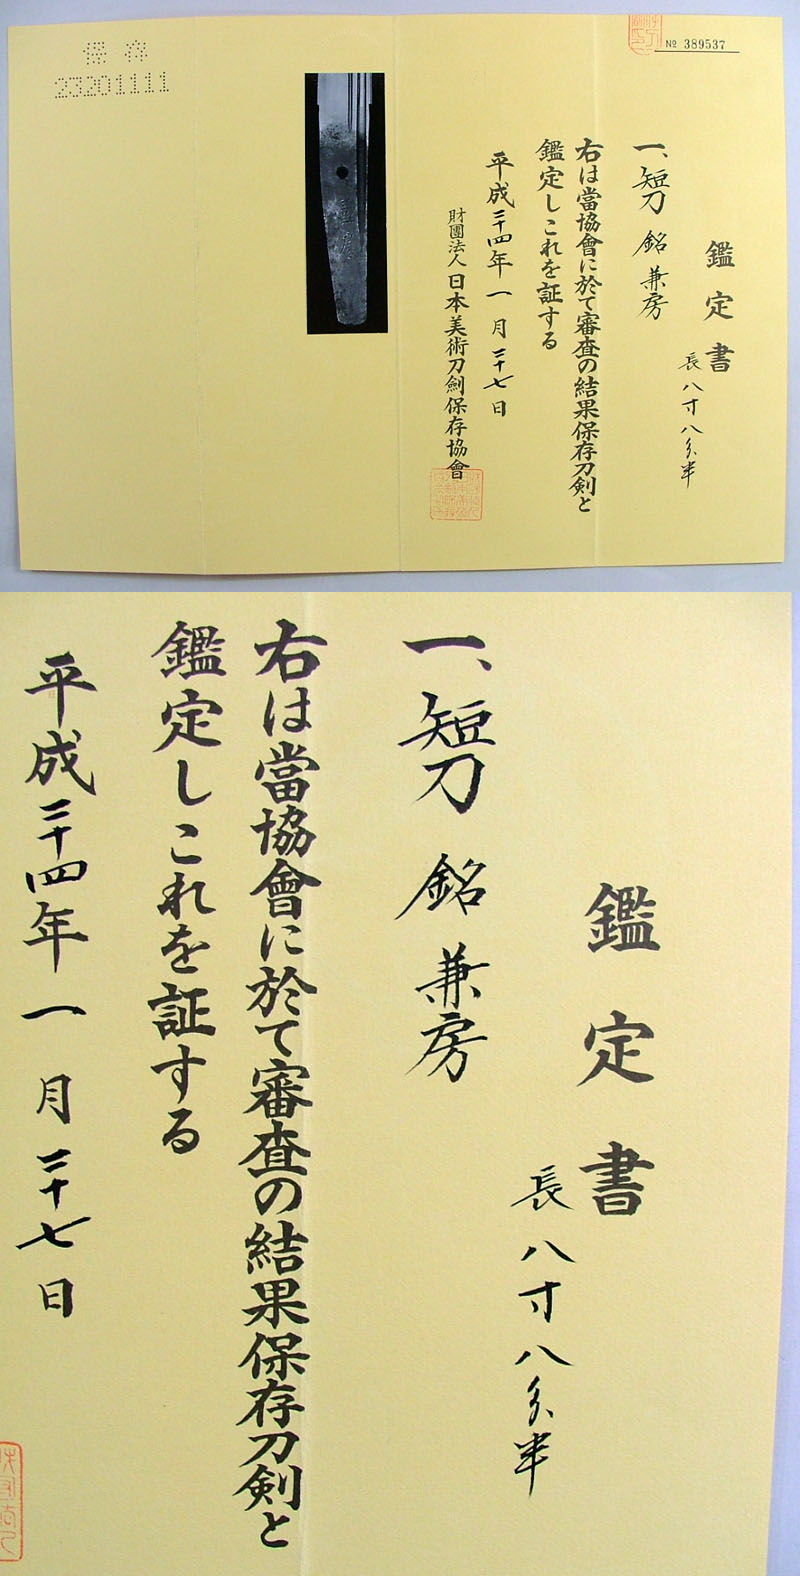 保存
23201111
№ 389537
鑑定書
長八寸八分半
一、短刀 銘 兼房
右は當協會に於て審査の結果保存刀剣と
鑑定しこれを証する
平成二十四年一月二十七日
財團法人 日本美術刀劍保存協會
鑑定書
長八寸八分半
一、短刀 銘 兼房
右は當協會に於て審査の結果保存刀剣と
鑑定しこれを証する
平成二十四年一月二十七日